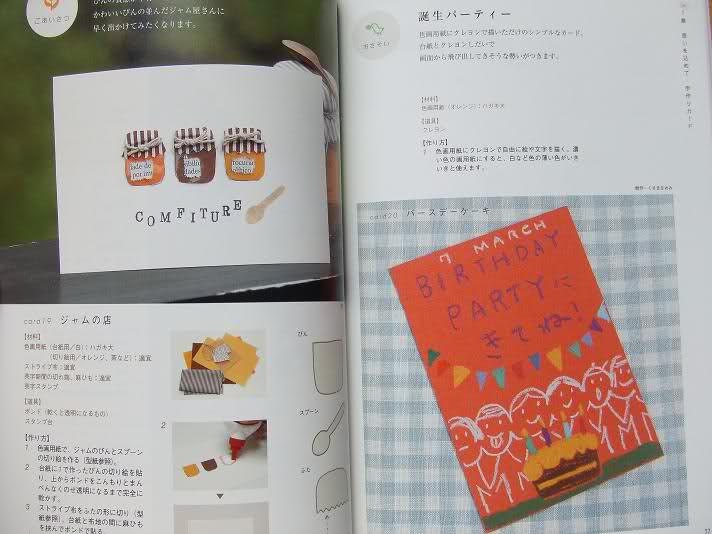 ごあいさつ
かわいいびんの並んだジャム屋さんに
早く出かけてみたくなります。
COMFITURE
card19 ジャムの店
【材料】
色画用紙（台紙用／白）：ハガキ大
（切り絵用／オレンジ、茶など）：適宜
ストライプ布：適宜
英字新聞の切れ端、麻ひも：適宜
英字スタンプ
【道具】
ボンド（乾くと透明になるもの）
スタンプ台
【作り方】
1 色画用紙で、ジャムのびんとスプーン
の切り絵を作る（型紙参照）。
2 台紙に1で作ったびんの切り絵を貼
り、上からボンドをこんもりとまん
べんなくのせ透明になるまで完全に
乾かす。
3 ストライプ布をふたの形に切り（型
紙参照）、台紙と布地の間に麻ひも
を挟んでボンドで貼る。
2
びん
スプーン
ふた
おさそい
誕生パーティー
色画用紙にクレヨンで描いただけのシンプルなカード。
台紙とクレヨンしだいで
画面から飛び出してきそうな勢いがつきます。
【材料】
色画用紙（オレンジ）：ハガキ大
【道具】
クレヨン
【作り方】
1 色画用紙にクレヨンで自由に絵や文字を描く。濃
い色の画用紙にすると、白など色の薄い色がいき
いきと使えます。
card20 バースデーケーキ
7 MARCH
BIRTHDAY
PARTYに
きてね!
想いを込めて 手作りカード